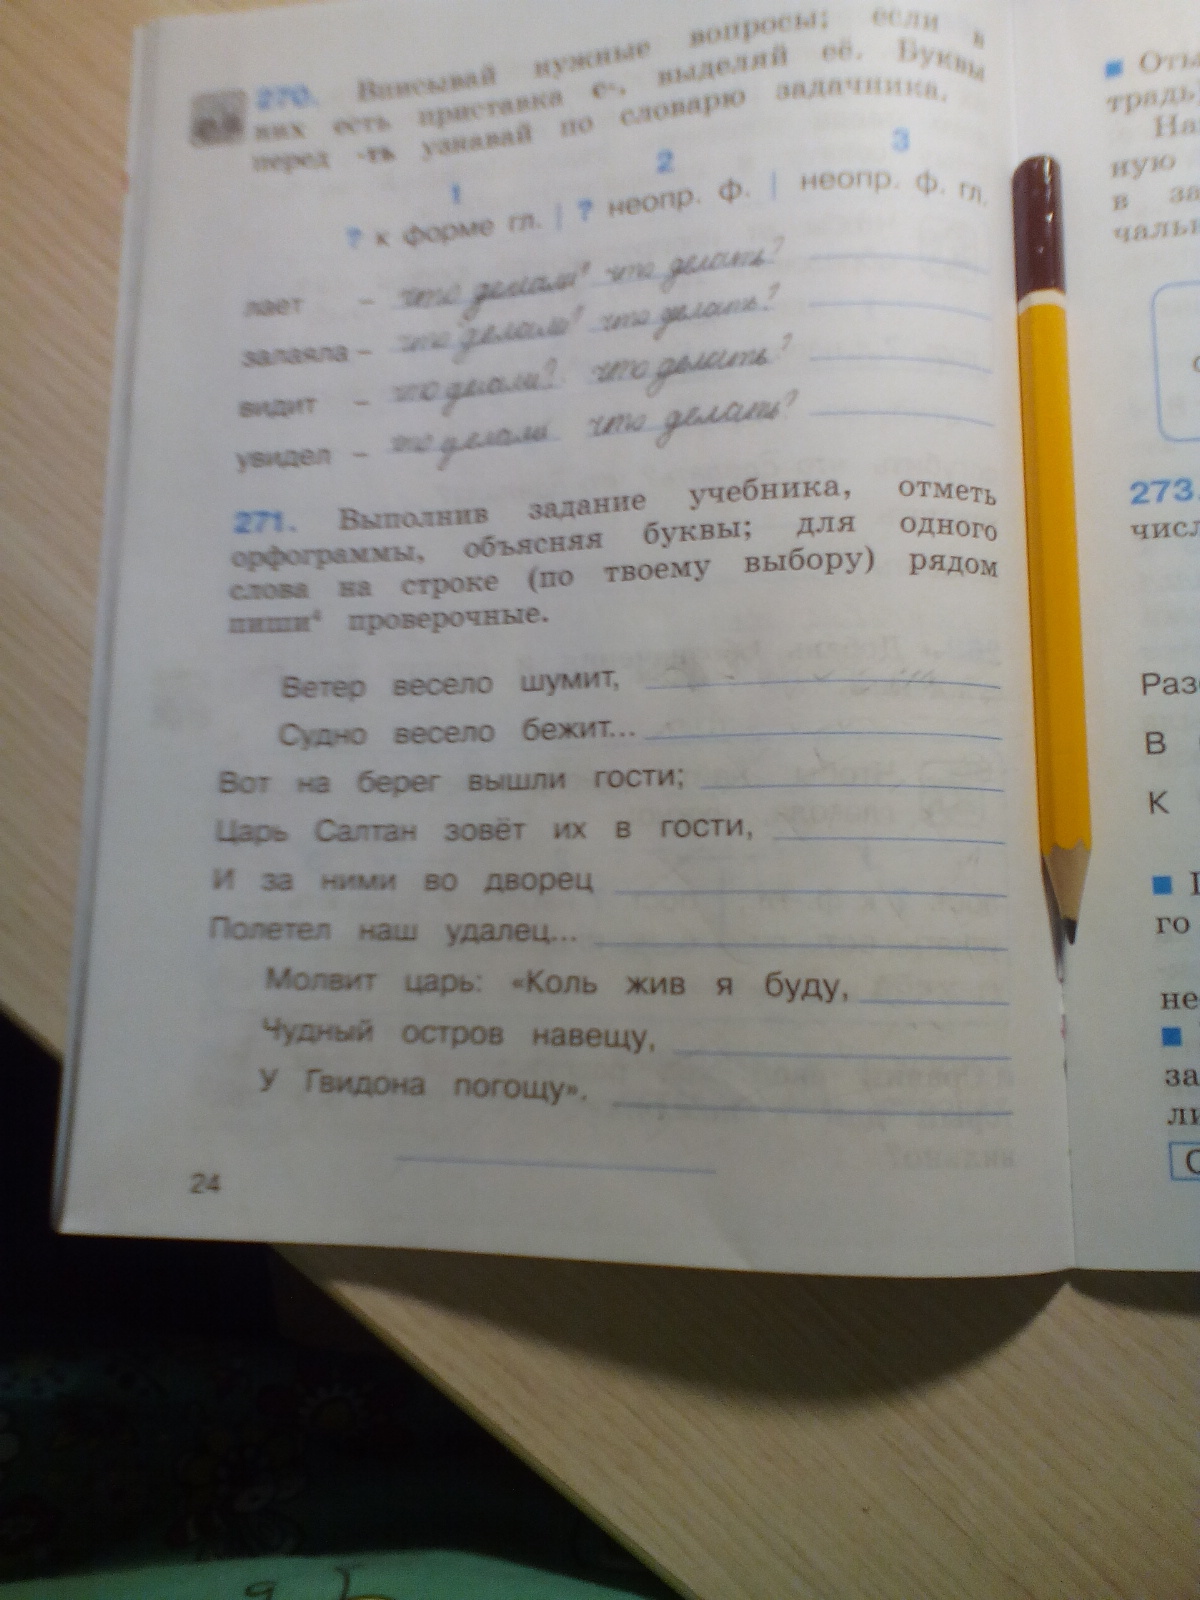 270. Вписывай нужные вопросы; если в
них есть приставка с-, выделяй её. Буквы
перед -ть узнавай по словарю задачника.
1 2 3
? к форме гл. | ? неопр. ф. | неопр. ф. гл.
лает – что делали? что делать?
залаяла – что делали? что делать?
видит – что делали? что делать?
увидел – что делали что делать?
271. Выполнив задание учебника, отметь
орфограммы, объясняя буквы; для одного
слова на строке (по твоему выбору) рядом
пиши⁴ проверочные.
Ветер весело шумит,
Судно весело бежит...
Вот на берег вышли гости;
Царь Салтан зовёт их в гости,
И за ними во дворец
Полетел наш удалец...
Молвит царь: «Коль жив я буду,
Чудный остров навещу,
У Гвидона погощу».
24
273.
числ
Раз
В
К
го
не
за
ли